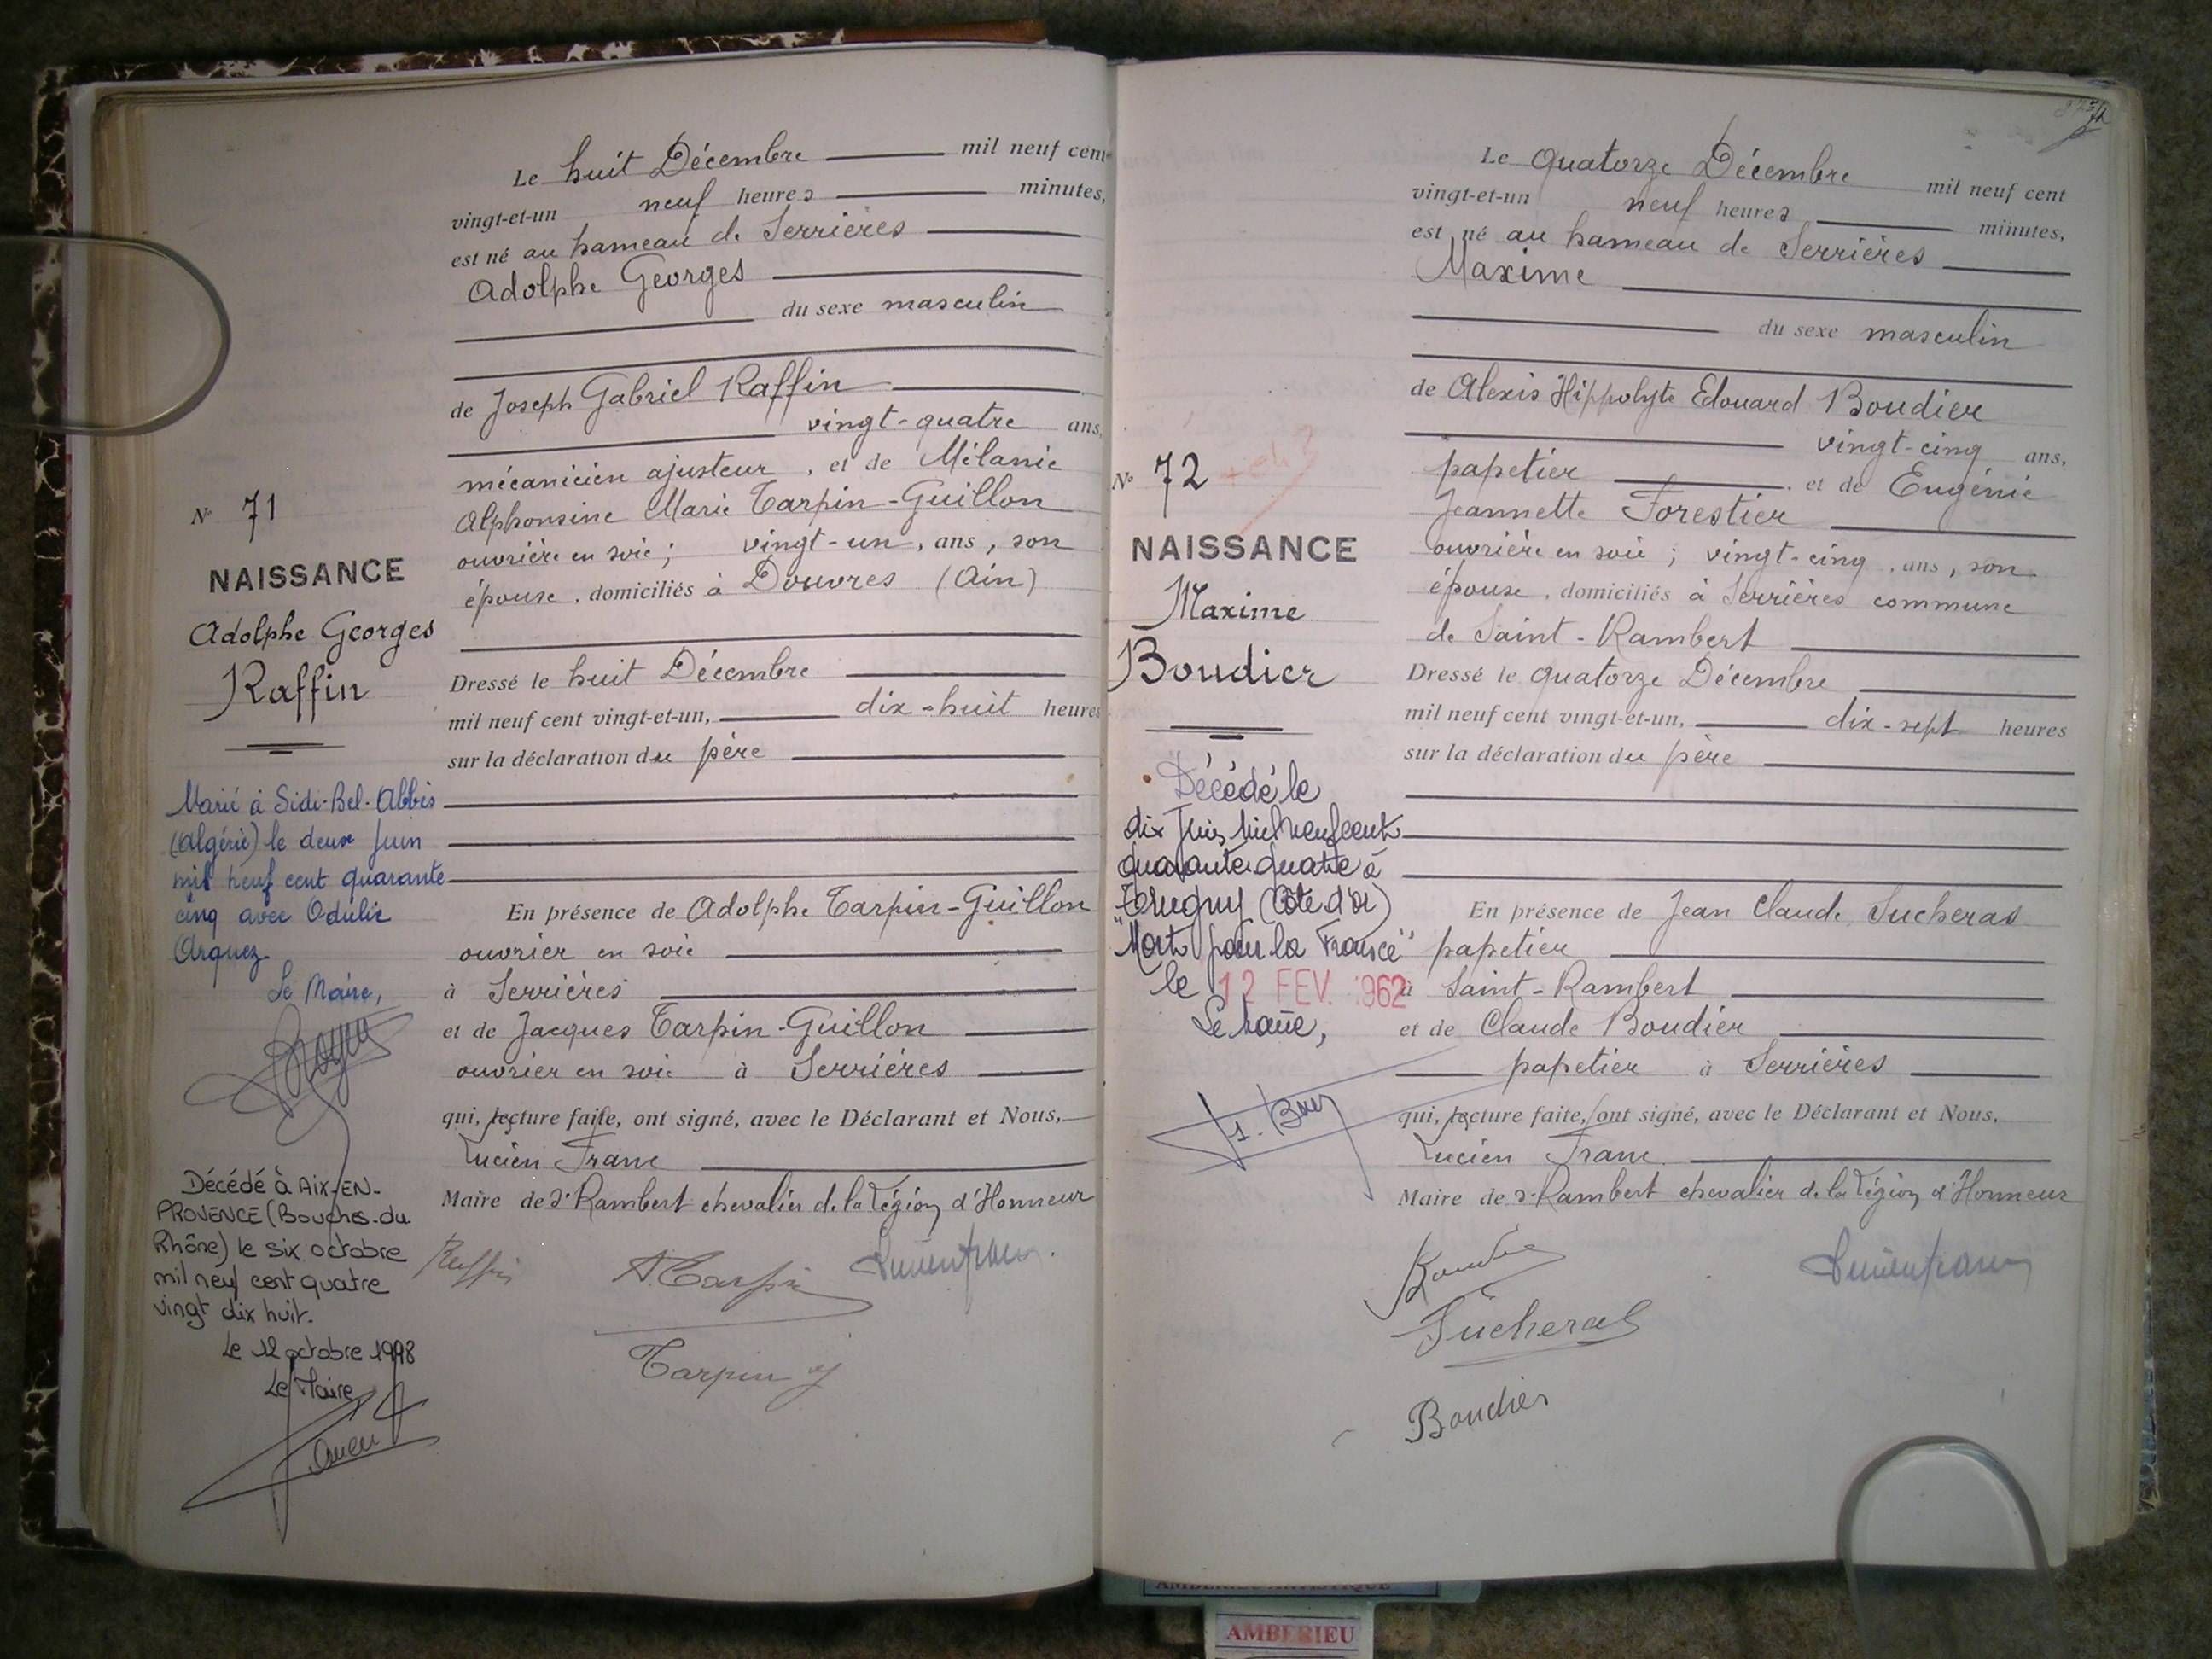 Le huit Décembre mil neuf cent
vingt-et-un neuf heures minutes,
est né au hameau de Serrières
Adolphe Georges
du sexe masculin
de Joseph Gabriel Raffin
vingt-quatre ans,
mécanicien ajusteur, et de Mélanie
Alphonsine Marie Tarpin-Guillon
ouvrière en soie; vingt-un, ans, son
épouse, domiciliés à Douvres (Ain)
Dressé le huit Décembre
mil neuf cent vingt-et-un, dix-huit heures
sur la déclaration du père
En présence de Adolphe Tarpin-Guillon
ouvrier en soie
à Serrières
et de Jacques Tarpin-Guillon
ouvrier en soie à Serrières
qui, lecture faite, ont signé, avec le Déclarant et Nous,
Lucien Franc
Maire de St Rambert chevalier de la Légion d'Honneur
Raffin A. Tarpin Lucien Franc
Tarpin J
N° 71
NAISSANCE
Adolphe Georges
Raffin
Marié à Sidi-Bel-Abbès
(Algérie) le deux Juin
mil neuf cent quarante
cinq avec Odulie
Arquez
Le Maire,
Décédé à AIX-EN-
PROVENCE (Bouches-du
Rhône) le six octobre
mil neuf cent quatre
vingt dix huit.
Le 12 octobre 1998
Le Maire
Le quatorze Décembre mil neuf cent
vingt-et-un neuf heures minutes,
est né au hameau de Serrières
Maxime
du sexe masculin
de Alexis Hippolyte Edouard Boudier
vingt-cinq ans,
papetier, et de Eugénie
Jeannette Forestier
ouvrière en soie; vingt-cinq, ans, son
épouse, domiciliés à Serrières commune
de Saint-Rambert
Dressé le quatorze Décembre
mil neuf cent vingt-et-un, dix-sept heures
sur la déclaration du père
En présence de Jean Claude Sucheras
papetier
à Saint-Rambert
et de Claude Boudier
papetier à Serrières
qui, lecture faite, ont signé, avec le Déclarant et Nous,
Lucien Franc
Maire de St Rambert chevalier de la Légion d'Honneur
Boudier Lucien Franc
Sucheras
Boudier
N° 72
NAISSANCE
Maxime
Boudier
Décédé le
dix Juin mil neuf cent
quarante quatre à
(Côte d'or)
"Mort pour la France"
le 12 FEV. 1962
Le Maire,
AMBERIEU